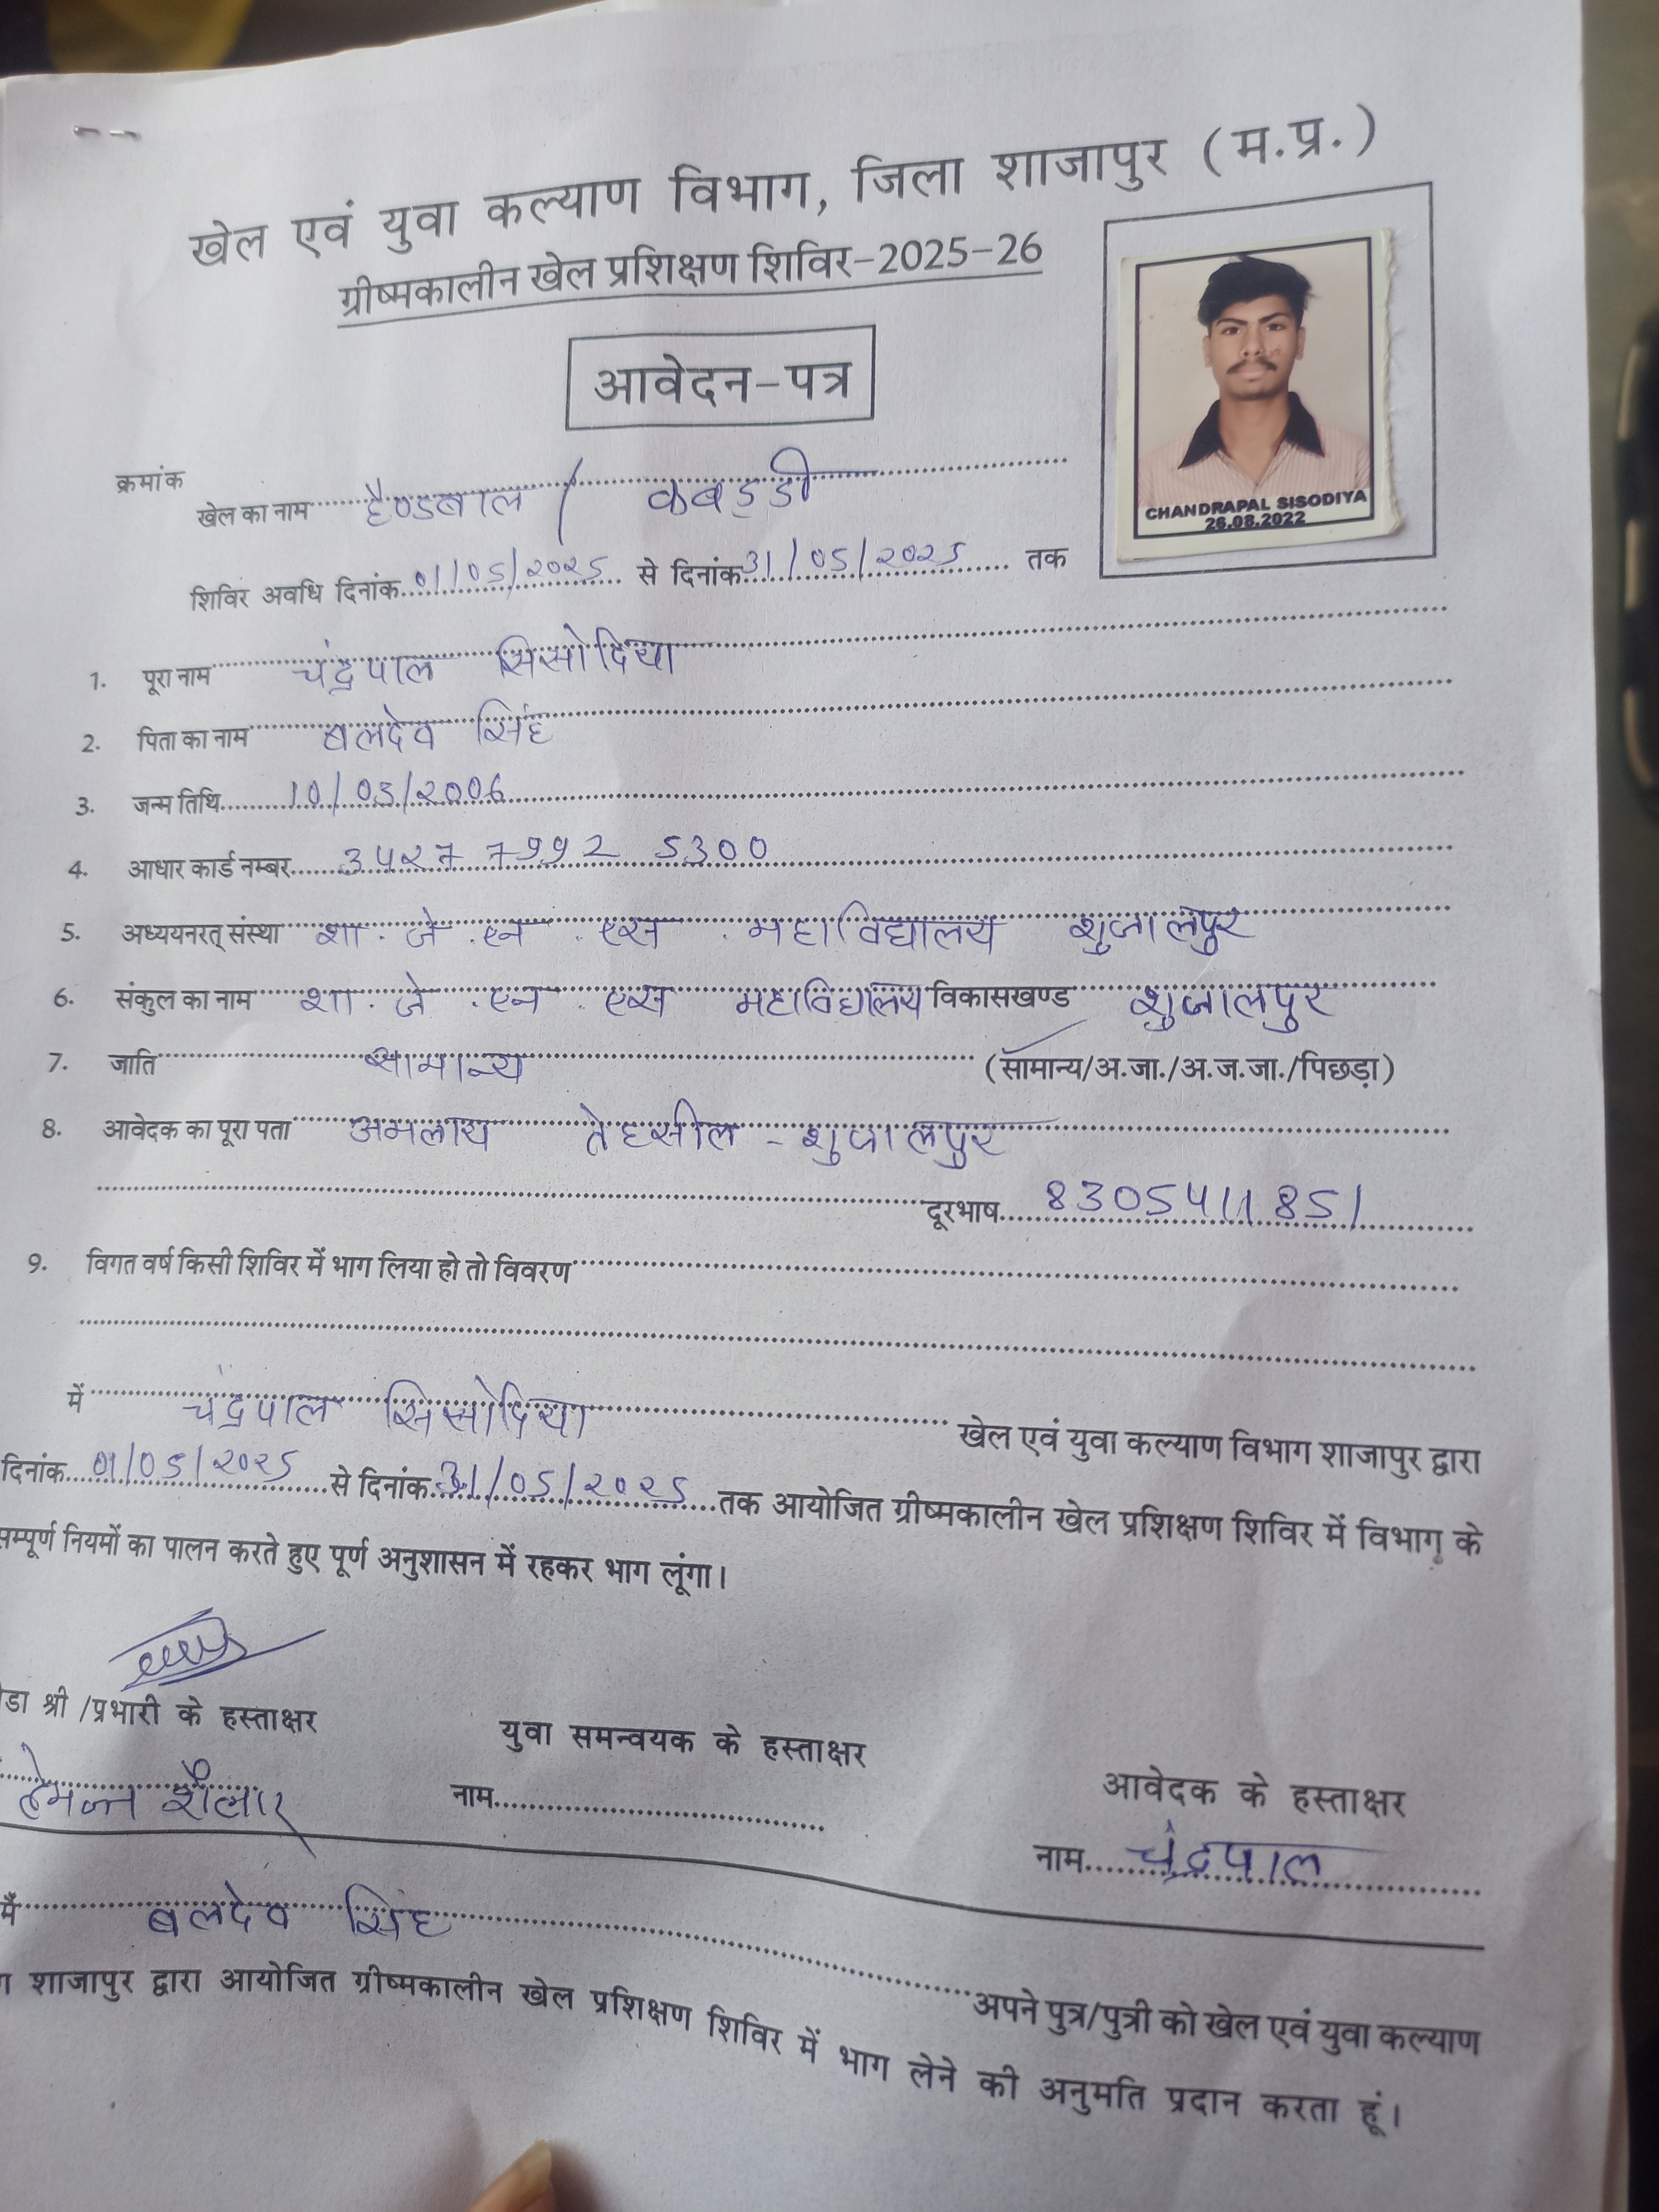 खेल एवं युवा कल्याण विभाग, जिला शाजापुर (म.प्र.)
ग्रीष्मकालीन खेल प्रशिक्षण शिविर-2025-26
आवेदन-पत्र
CHANDRAPAL SISODIYA
26.08.2022
क्रमांक
खेल का नाम हैण्डबाल / कबड्डी
शिविर अवधि दिनांक 01/05/2025 से दिनांक 31/05/2025 तक
1. पूरा नाम चंद्रपाल सिसोदिया
2. पिता का नाम बलदेव सिंह
3. जन्म तिथि 10/05/2006
4. आधार कार्ड नम्बर 3427 7992 5300
5. अध्ययनरत् संस्था शा. जे. एन. एस. महाविद्यालय शुजालपुर
6. संकुल का नाम शा. जे. एन. एस महाविद्यालय विकासखण्ड शुजालपुर
7. जाति सामान्य (सामान्य/अ.जा./अ.ज.जा./पिछड़ा)
8. आवेदक का पूरा पता अमलाय तेहसील - शुजालपुर
दूरभाष 8305411851
9. विगत वर्ष किसी शिविर में भाग लिया हो तो विवरण
में चंद्रपाल सिसोदिया खेल एवं युवा कल्याण विभाग शाजापुर द्वारा
दिनांक 01/05/2025 से दिनांक 31/05/2025 तक आयोजित ग्रीष्मकालीन खेल प्रशिक्षण शिविर में विभाग के
सम्पूर्ण नियमों का पालन करते हुए पूर्ण अनुशासन में रहकर भाग लूंगा।
डा श्री /प्रभारी के हस्ताक्षर
युवा समन्वयक के हस्ताक्षर
आवेदक के हस्ताक्षर
नाम
नाम चंद्रपाल
मैं बलदेव सिंह अपने पुत्र/पुत्री को खेल एवं युवा कल्याण
शाजापुर द्वारा आयोजित ग्रीष्मकालीन खेल प्रशिक्षण शिविर में भाग लेने की अनुमति प्रदान करता हूं।